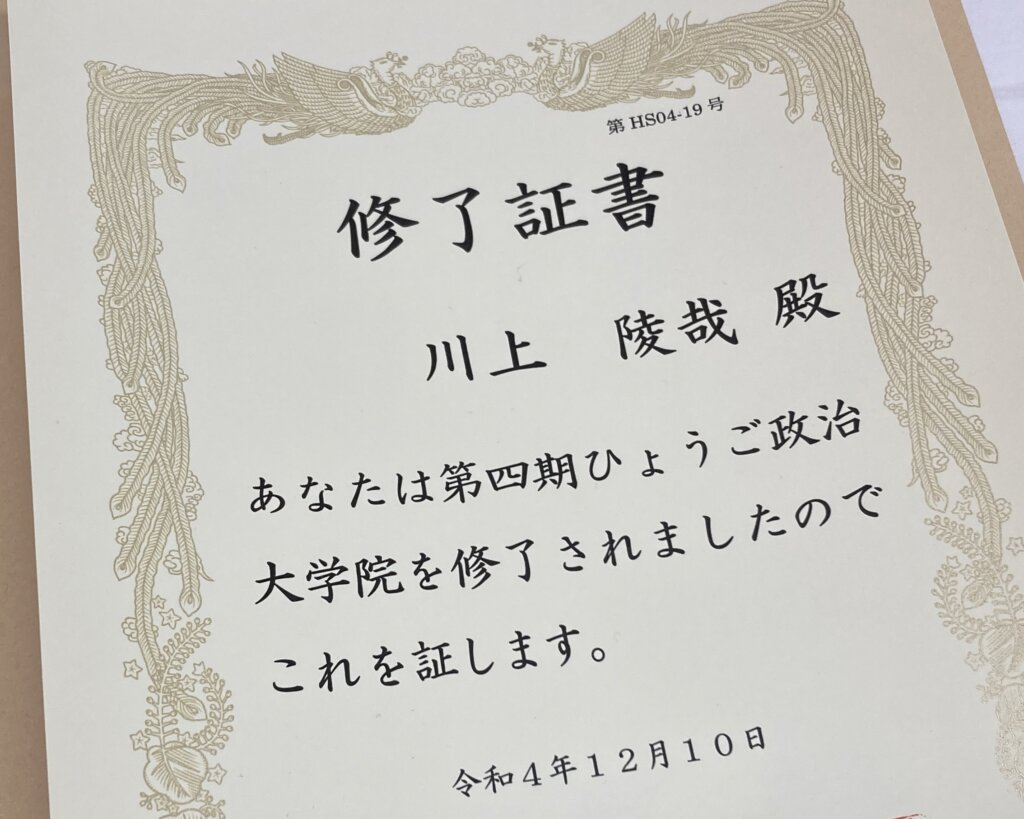 第 HS04-19 号
修了証書
川上　陵哉 殿
あなたは第四期ひょうご政治
大学院を修了されましたので
これを証します。
令和４年１２月１０日